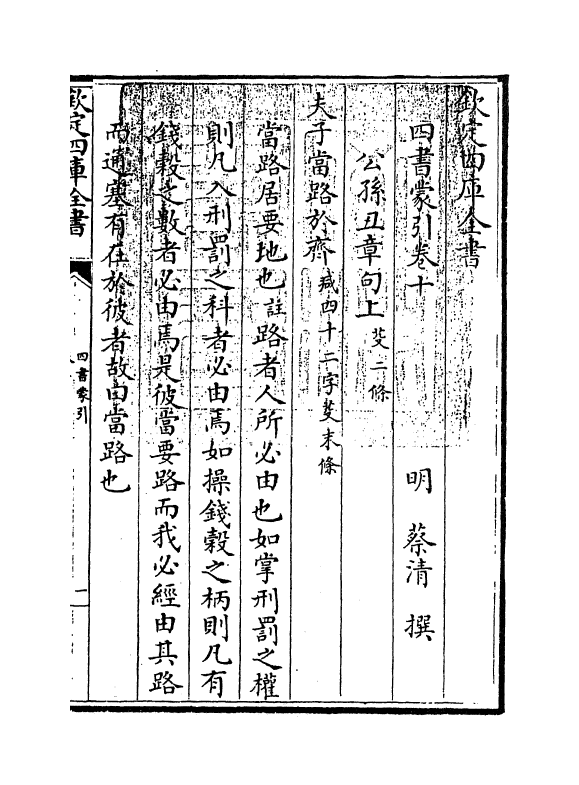 欽定四庫全書
四書蒙引卷十
明 蔡清 撰
公孫丑章句上 芟二條
夫子當路於齊 減四十二字芟末條
當路居要地也註路者人所必由也如掌刑罰之權
則凡入刑罰之科者必由焉如操錢穀之柄則凡有
錢穀之數者必由焉是彼當要路而我必經由其路
而通塞有在於彼者故曰當路也
欽定四庫全書
四書蒙引